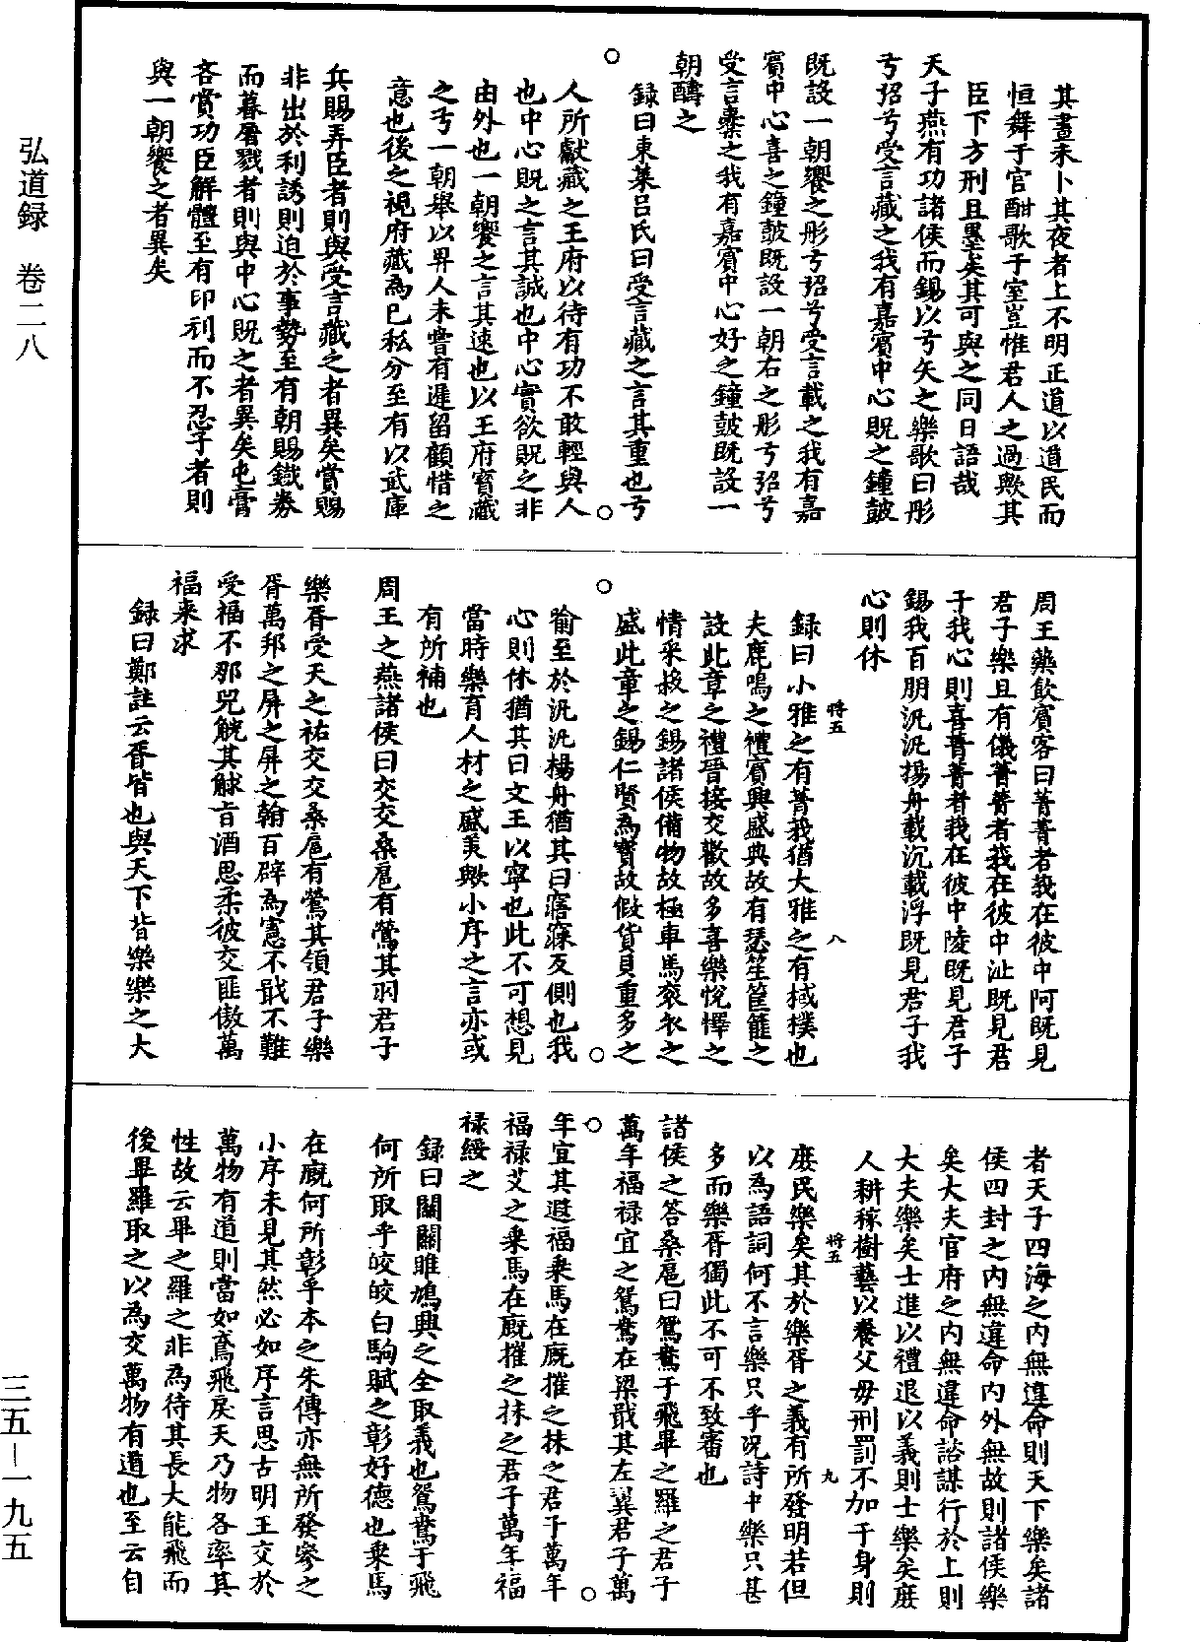 其晝未卜其夜者上不明正道以道民而
恒舞于官酣歌于室豈惟君人之過歟其
臣下方刑且墨矣其可與之同日語哉
天子燕有功諸侯而錫以弓矢之樂歌曰彤
弓弨兮受言藏之我有嘉賓中心貺之鐘鼓
既設一朝饗之彤弓弨兮受言載之我有嘉
賓中心喜之鐘鼓既設一朝右之彤弓弨兮
受言櫜之我有嘉賓中心好之鐘鼓既設一
朝醻之
錄曰東萊呂氏曰受言藏之言其重也弓
人所獻藏之王府以待有功不敢輕與人
也中心貺之言其誠也中心實欲貺之非
由外也一朝饗之言其速也以王府寶藏
之弓一朝舉以畀人未嘗有遲留顧惜之
意也後之視府藏為己私分至有以武庫
兵賜弄臣者則與受言藏之者異矣賞賜
非出於利誘則迫於事勢至有朝賜鐵券
而暮屠戮者則與中心貺之者異矣屯膏
吝賞功臣解體至有印刓而不忍予者則
與一朝饗之者異矣
周王藥飲賓客曰菁菁者莪在彼中阿既見
君子樂且有儀菁菁者莪在彼中沚既見君
子我心則喜菁菁者莪在彼中陵既見君子
錫我百朋汎汎揚舟載沉載浮既見君子我
心則休
錄曰小雅之有菁莪猶大雅之有棫樸也
夫鹿鳴之禮賓興盛典故有瑟笙筐篚之
設此章之禮晉接交歡故多喜樂悅懌之
情采菽之錫諸侯備物故極車馬袞衣之
盛此章之錫仁賢為寶故假貨貝重多之
喻至於汎汎楊舟猶其曰寤寐反側也我
心則休猶其曰文王以寧也此不可想見
當時樂育人材之盛美歟小序之言亦或
有所補也
周王之燕諸侯曰交交桑扈有鶯其羽君子
樂胥受天之祜交交桑扈有鶯其領君子樂
胥萬邦之屏之屏之翰百辟為憲不戢不難
受福不那兕觥其觩旨酒思柔彼交匪傲萬
福來求
錄曰鄭註云胥皆也與天下皆樂樂之大
者天子四海之內無違命則天下樂矣諸
侯四封之內無違命內外無故則諸侯樂
矣大夫官府之內無違命諮謀行於上則
大夫樂矣士進以禮退以義則士樂矣庶
人耕稼樹藝以養父毋刑罰不加于身則
庶民樂矣其於樂胥之義有所發明若但
以為語詞何不言樂只乎況詩中樂只甚
多而樂胥獨此不可不致審也
諸侯之答桑扈曰鴛鴦于飛畢之羅之君子
萬年福祿宜之鴛鴦在梁戢其左翼君子萬
年宜其遐福乘馬在廐摧之抹之君子萬年
福祿艾之乘馬在廐摧之抹之君子萬年福
祿綏之
錄曰關關雎鳩興之全取義也鴛鴦于飛
何所取乎皎皎白駒賦之彰好德也乘馬
在廐何所彰乎本之朱傳亦無所發寥之
小序未見其然必如序言思古明王交於
萬物有道則當如鳶飛戾天乃物各率其
性故云畢之羅之非為待其長大能飛而
後畢羅取之以為交萬物有道也至云自
將五
八
將五
九
弘道録 卷二八
三五—一九五